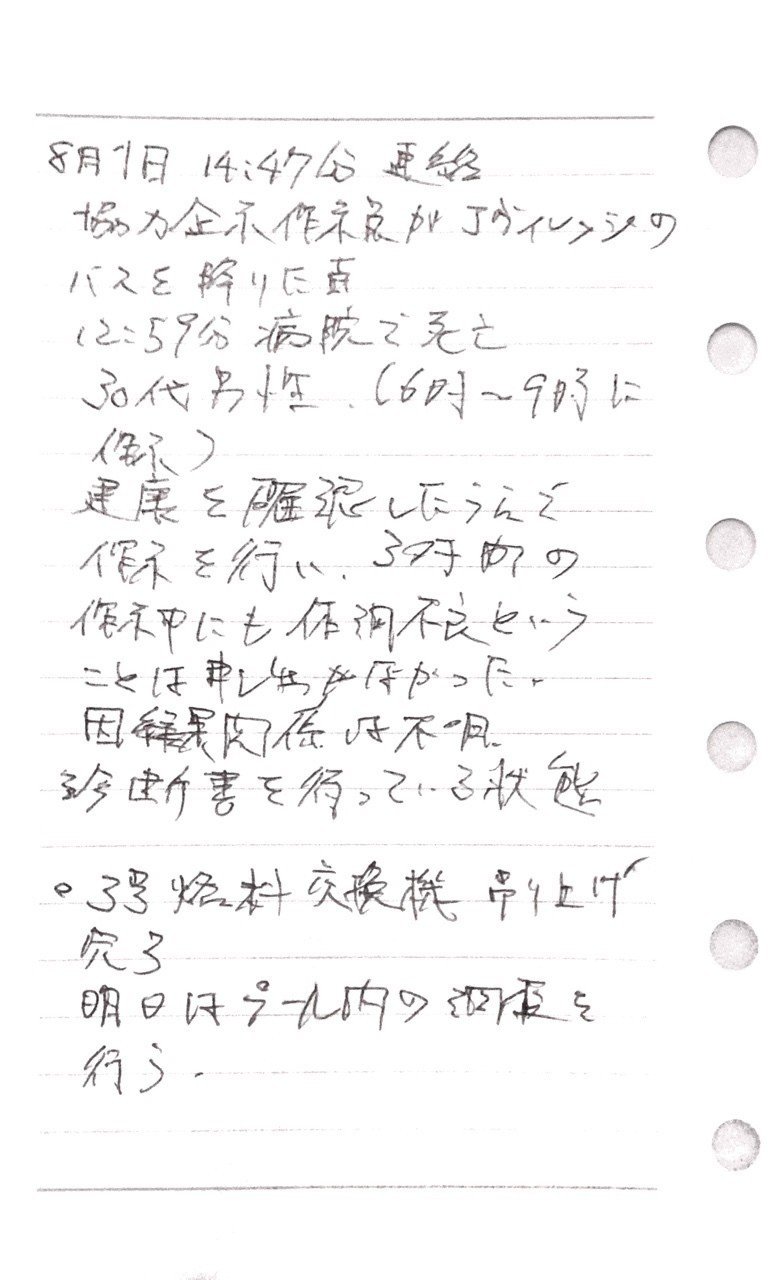 8月1日 14:47分 連絡
協力企業作業員がJヴィレッジの
バスを降りた直
12:59分 病院で死亡
30代男性、(6時〜9時に
作業)
健康を確認したうえで
作業を行い、3時間の
作業中にも体調不良という
ことは申し出がなかった。
因果関係は不明。
診断書を待っている状態
○ 3号燃料交換機 吊り上げ
完了
明日はプール内の調査を
行う。